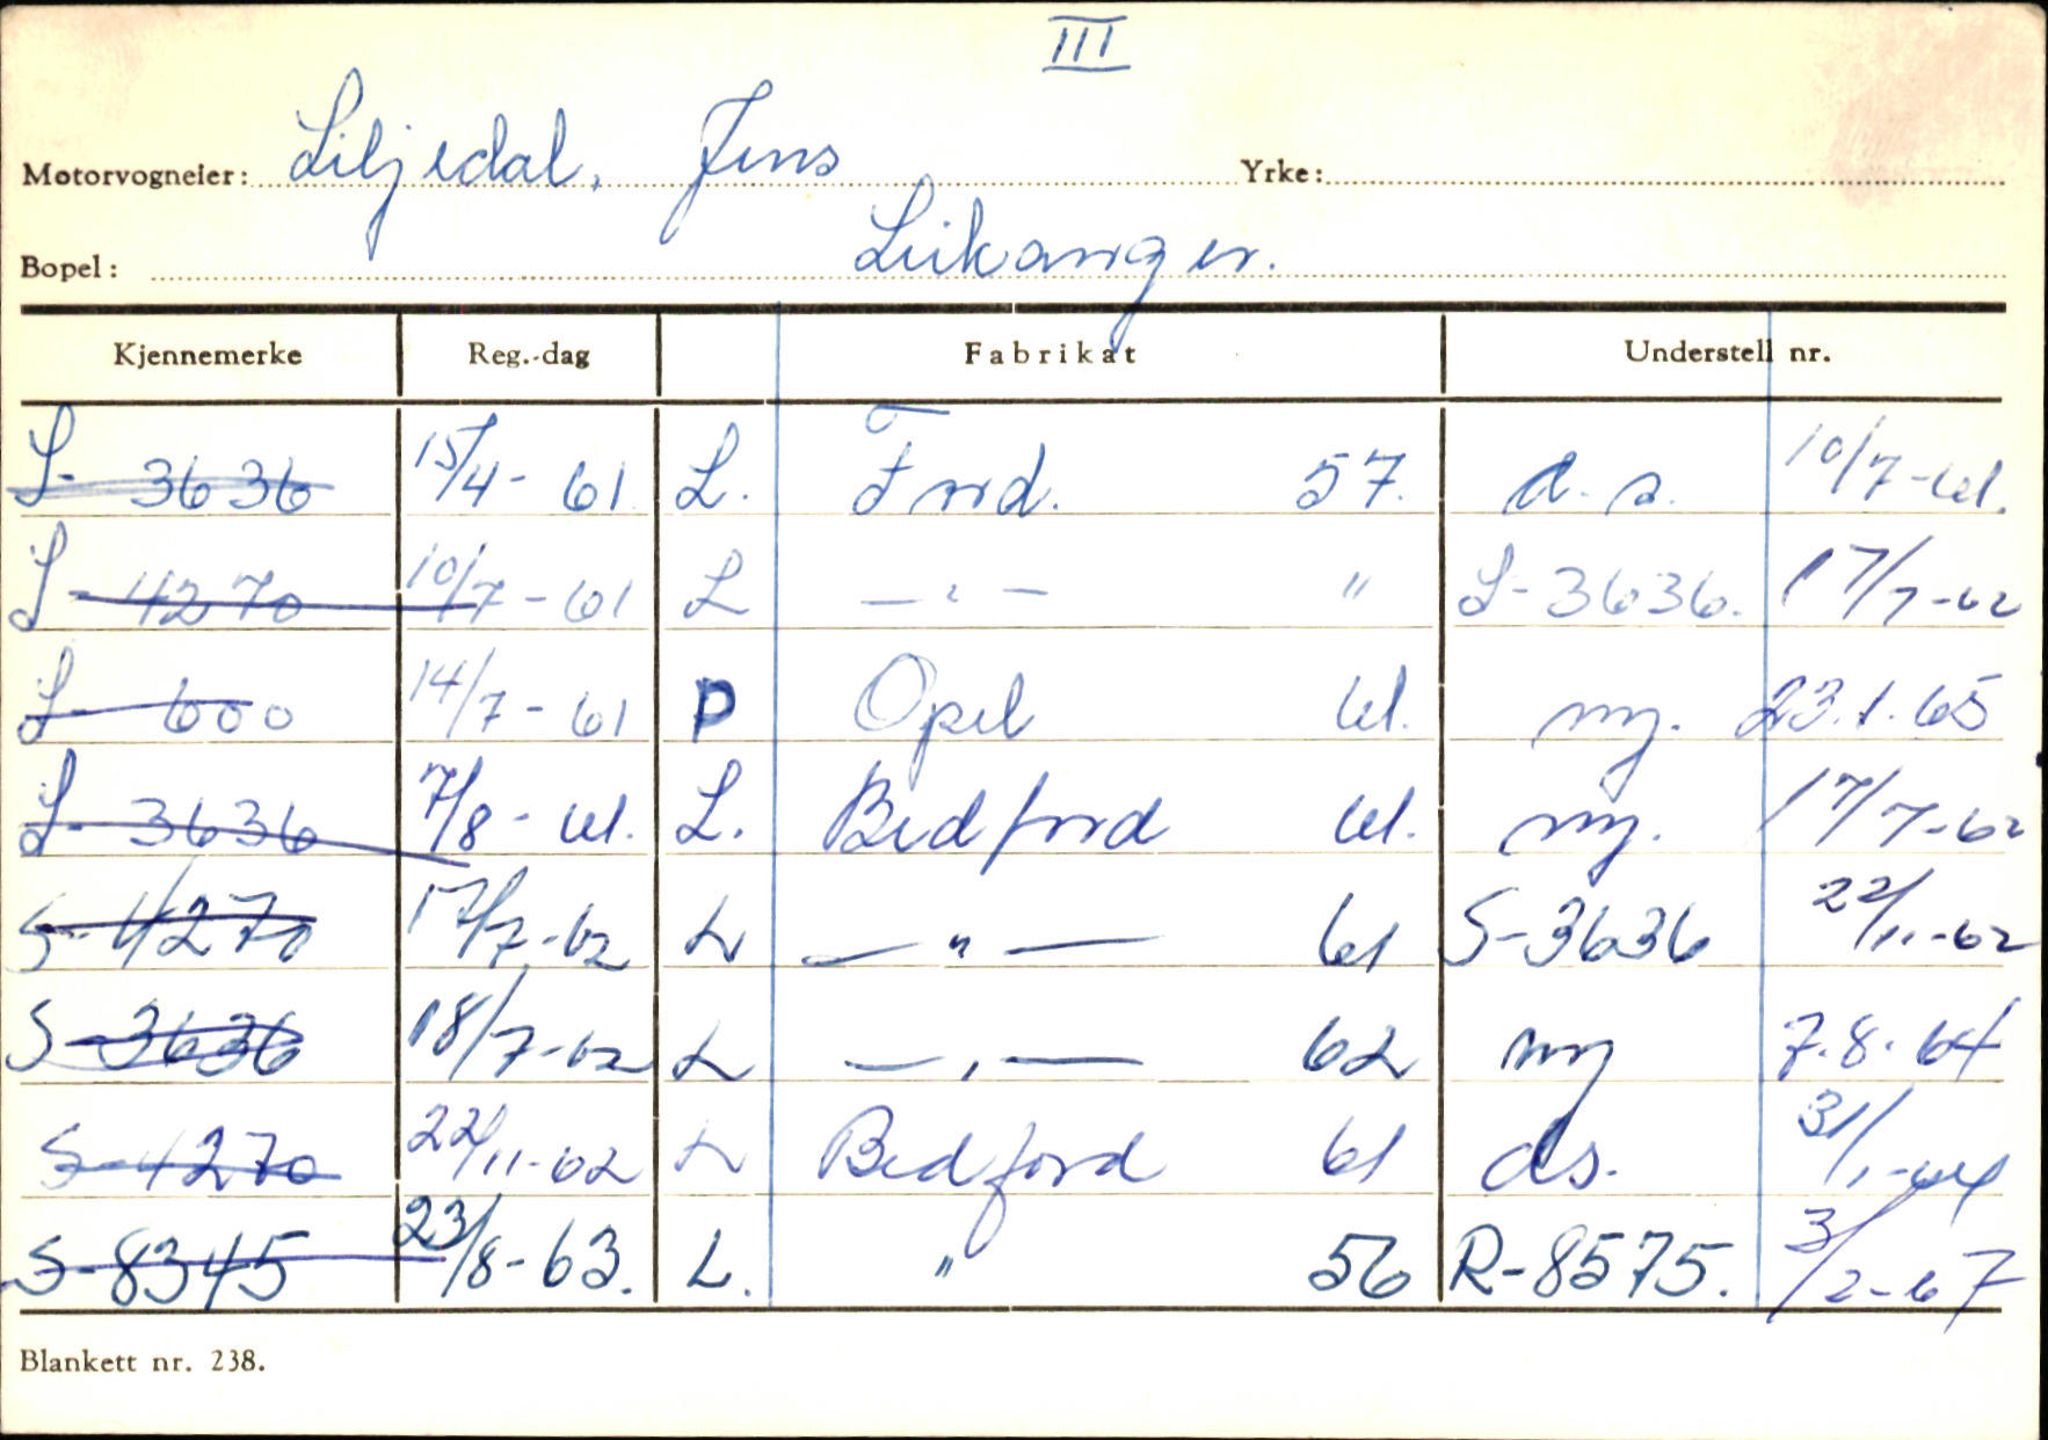 III
Motorvogneier: Liljedal, Jens Yrke:
Bopel: Leikanger.
Kjennemerke Reg.-dag Fabrikat Understell nr.
S- 3636 15/4-61 L. Ford. 57. d.s. 10/7-61.
S- 4270 10/7-61 L —"— " S-3636. 17/7-62
S- 600 14/7-61 P Opel 61. ny. 23.1.65
S- 3636 7/8-61. L. Bedford 61. ny. 17/7-62
S-4270 17/7-62 L —"— 61 S-3636 22/11-62
S-3636 18/7-62 L —,— 62 ny 7.8.64
S-4270 22/11-62 L Bedford 61 ds. 31/1-64
S-8345 23/8-63. L. " 56 R-8575. 3/2-67
Blankett nr. 238.